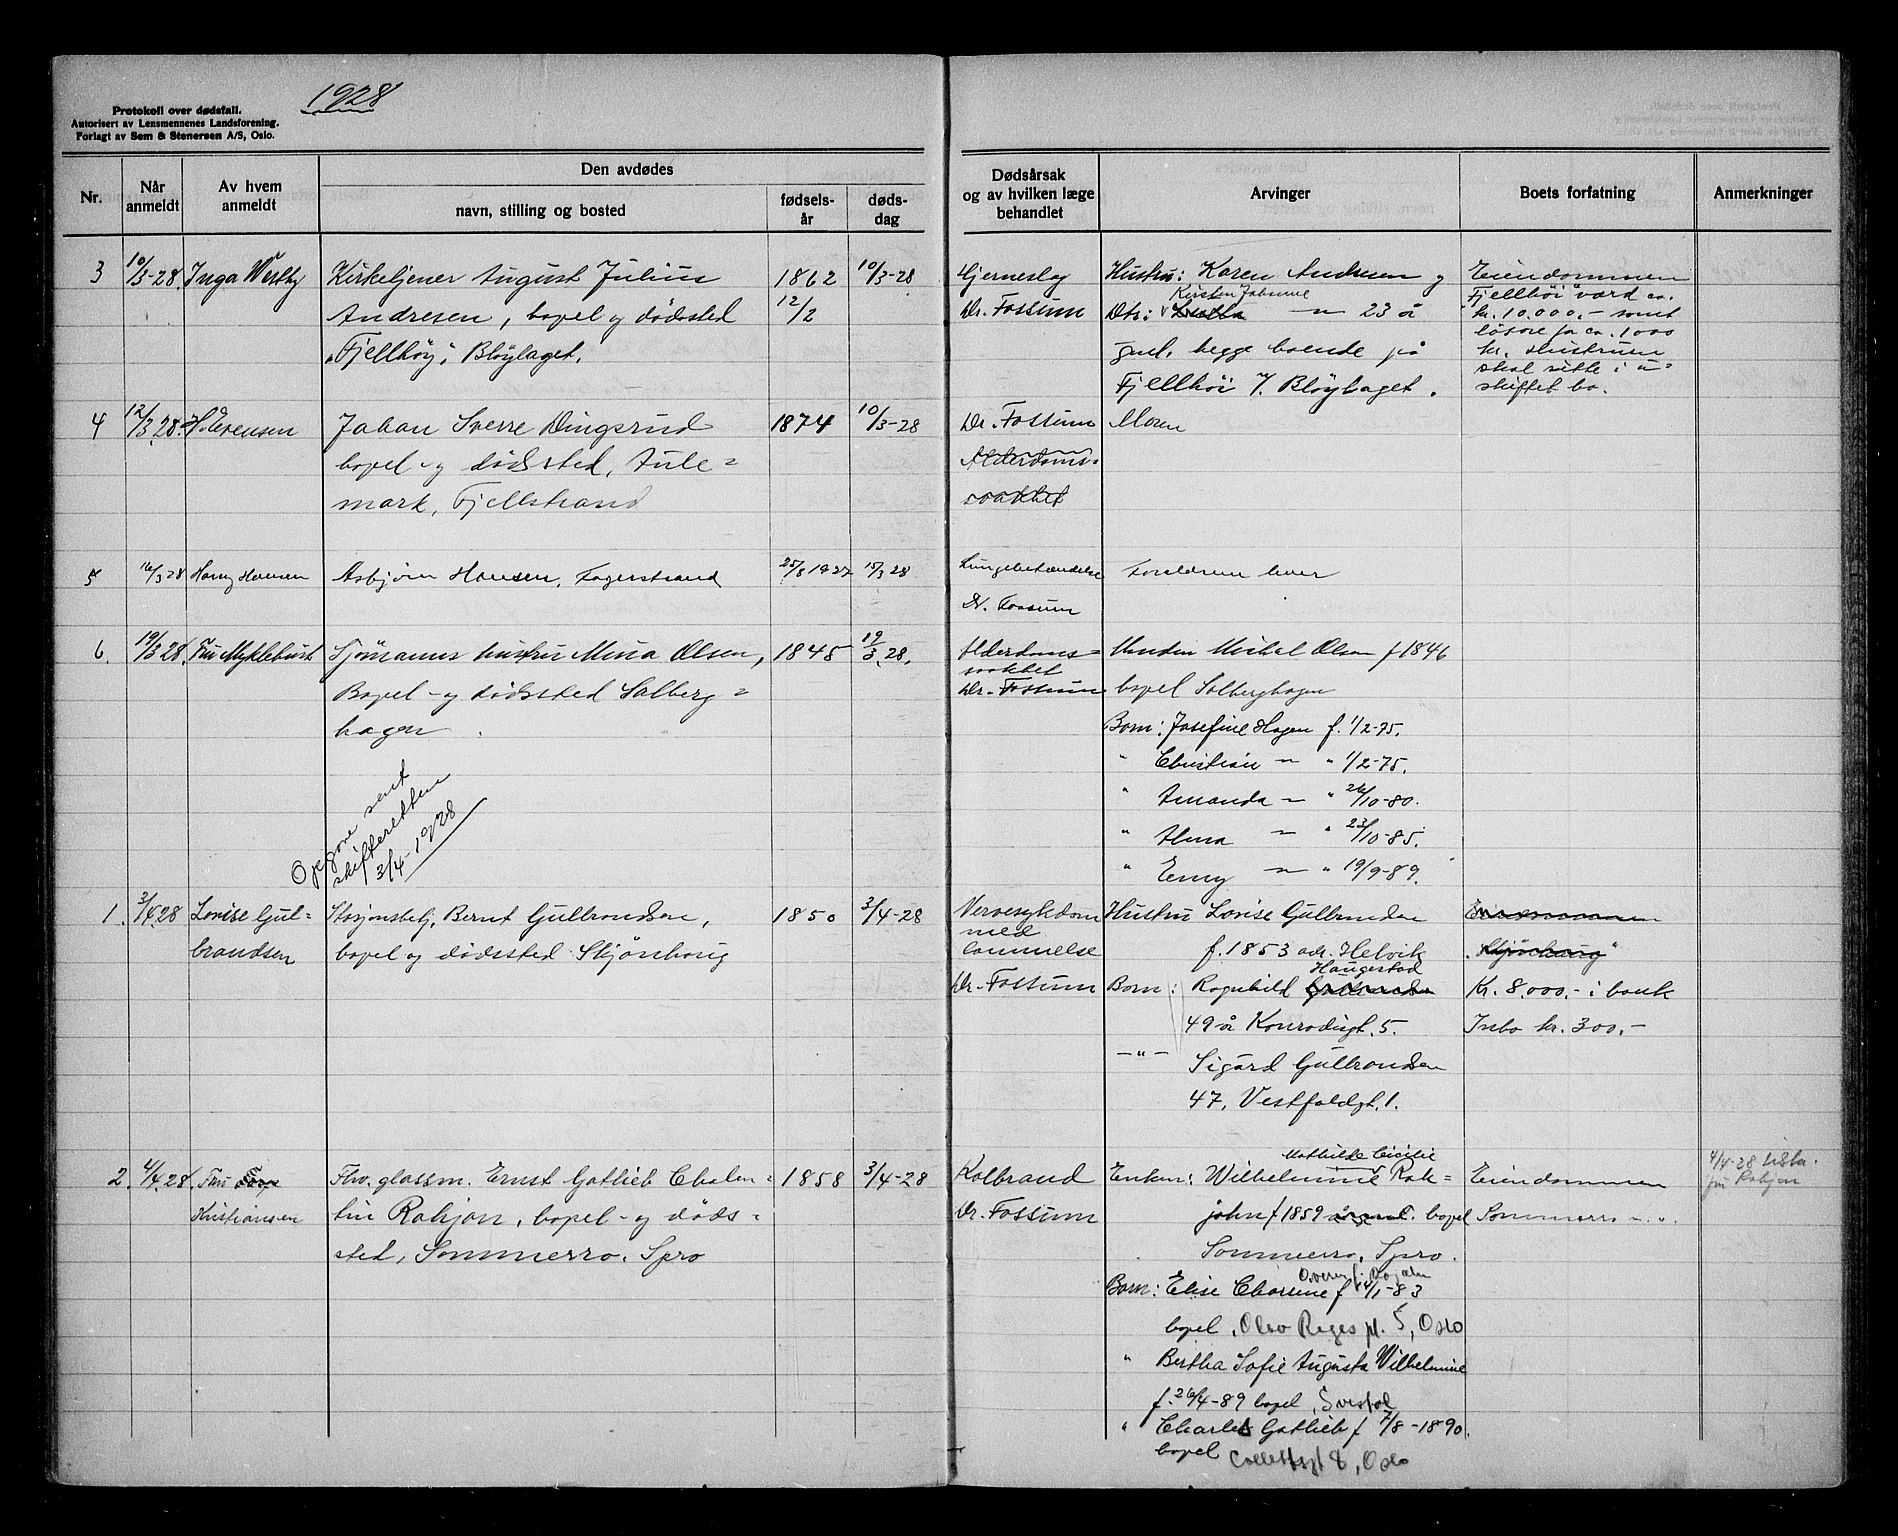 1928
Protokoll over dødsfall.
Autorisert av Lensmennenes Landsforening.
Forlagt av Sem & Stenersen A/S, Oslo.
Nr.
Når anmeldt
Av hvem anmeldt
Den avdødes
navn, stilling og bosted
fødsels-år
døds-dag
Dødsårsak og av hvilken læge behandlet
Arvinger
Boets forfatning
Anmerkninger
3 10/3-28. Inga Westby Kirketjener August Julius 1862 10/3-28 Hjerneslag Hustru: Karen Andresen og Eiendommen
Kirsten Johanne
Andresen, bopel og dødssted 12/2 Dr. Fossum Dtr: — " — 23 år "Fjellhöi" værd ca.
kr. 10.000,- samt
"Fjellhöy", Blöylaget. gml. begge boende på lösöre for ca. 1000
kr. Hustruen
Fjellhöi i/ Blöylaget. skal sitte i u=
skiftet bo.
4 12/3 28. H. Evensen Johan Sverre Dingsrud 1874 10/3-28 Dr. Fossum Moren
bopel- og dödssted, Tule= Alderdoms=
mark, Fjellstrand svakhet
5 16/3 28 Harry Hansen Asbjörn Hansen, Fagerstrand 25/8 1927 15/3 28 Lungebetændelse Foreldrene lever
Dr. Fossum
6. 19/3 28. Fru Myklebust Sjömanns hustru Mina Olsen, 1845 19/3 28. Alderdoms= Manden Mikal Olsen f 1846
svakhet
Bopel- og dödssted Solberg= Dr. Fossum bopel Solberghagen
hagen. Barn: Josefine Hagen f. 1/2-75.
" Christian — " — " 1/2-75.
" Amanda — " — " 26/10-80.
" Alma — " — " 23/10-85.
" Enny — " — " 19/9-89.
Opgave sent
skifteretten
3/4-1928
1. 3/4 28 Lovise Gul= Stasjonsbetj. Bernt Gulbrandsen, 1850 3/4-28 Nervesykdom Hustru Lovise Gulbrandsen Eiendommen
med
brandsen bopel og dödssted Skjönhaug lammelse f. 1853 adr. Helvik "Skjönhaug"
Haugestad
Dr. Fossum Barn: Ragnhild Gulbrandsen Kr. 8.000.- i bank
49 år Konradisgt. 5. Inbo kr. 300,-
— " — Sigurd Gulbrandsen
47, Vestfoldgt. 1.
2. 4/4 28 Fru Kristiansen Fhv. glassm. Ernst Gotlieb Chalen= 1858 3/4-28 Kolbrand Enken: Wilhelmine Rok= Eiendommen 4/4-28
Mathilde Cicilie
tin Rokjon, bopel- og döds= Dr. Fossum john f 1859 bopel Sommerro
sted, Sommerro. Spro Sommerro, Spro.
Barn: Elise Charine f 14/1-83
bopel, Olav Ryges pl. 5, Oslo
" Bertha Sofie Augusta Wilhelmine
f. 26/4-89 bopel, Svestad
" Charles Gotlieb f 7/8-1890.
bopel Collettsgt 8, Oslo